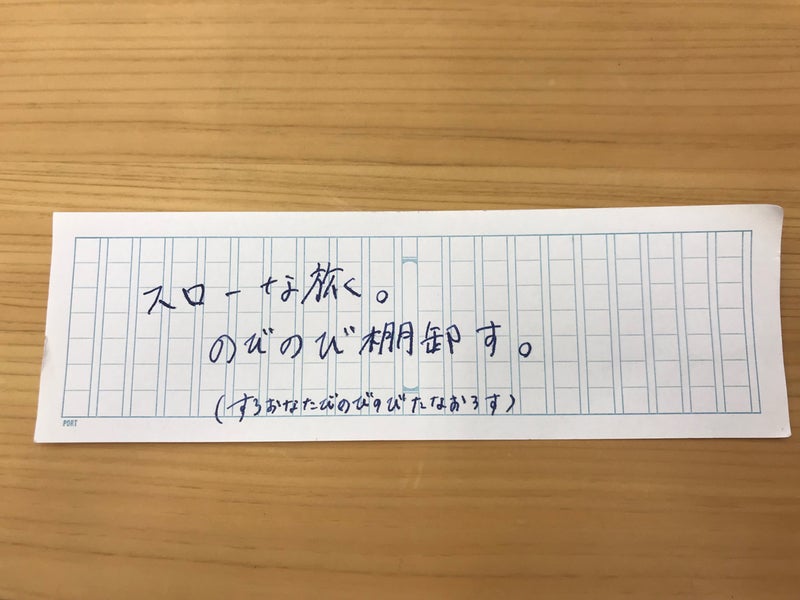 スローな旅く。
のびのび棚卸す。
(すろおなたびのびのびたなおろす)
PORT